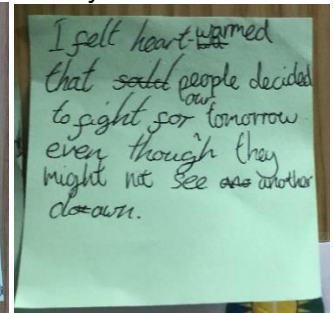 I felt heart-warmed
that people decided
to fight for our tomorrow
even though they
might not see another
dawn.